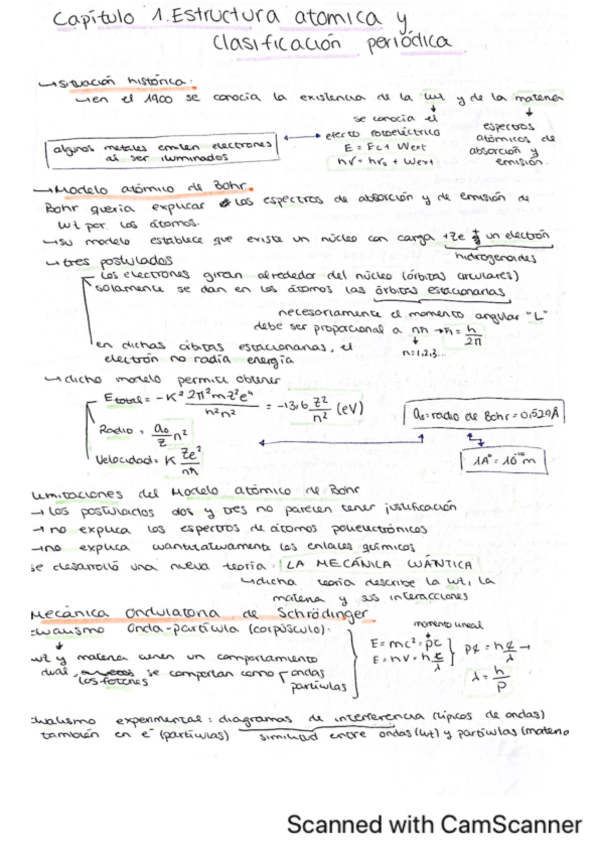 Capítulo 1. Estructura atomica y
clasificación periódica
→ situación histórica:
→ en el 1900 se conocía la existencia de la luz y de la materia
se conocía el
efecto fotoeléctrico
E = Ec + Wext
hν = hν₀ + Wext
espectros
atómicos de
absorción y
emisión.
algunos metales emiten electrones
al ser iluminados
→ Modelo atómico de Bohr.
Bohr quería explicar los espectros de absorción y de emisión de
luz por los átomos.
→ su modelo establece que exista un núcleo con carga +Ze y un electrón
hidrogenoides
→ tres postulados
los electrones giran alrededor del núcleo (órbitas circulares)
solamente se dan en los átomos las órbitas estacionarias
necesariamente el momento angular "L"
debe ser proporcional a nħ → ħ = h/2π
n=1,2,3...
en dichas órbitas estacionarias, el
electrón no radia energía
→ dicho modelo permite obtener
Etotal = -K² 2π²mZ²e⁴/h²n² = -13,6 Z²/n² (eV)
Radio = a₀/Z n²
a₀ = radio de Bohr = 0,529Å
Velocidad = K Ze²/nħ
1Å = 10⁻¹⁰ m
Limitaciones del Modelo atómico de Bohr
→ los postulados dos y tres no parecen tener justificación
→ no explica los espectros de átomos polielectrónicos
→ no explica cuantitativamente los enlaces químicos
se desarrolló una nueva teoría: LA MECÁNICA CUÁNTICA
→ dicha teoría describe la luz, la
materia y sus interacciones
Mecánica Ondulatoria de Schrödinger
Dualismo onda-partícula (corpúsculo).
luz y materia tienen un comportamiento
dual, se comportan como ondas
los fotones
partículas
momento lineal
E = mc² = pc
E = hν = h c/λ
pc = h c/λ →
λ = h/p
Dualismo experimental: diagramas de interferencia (típicos de ondas)
también en e⁻ (partículas) similitud entre ondas (luz) y partículas (materia
Scanned with CamScanner